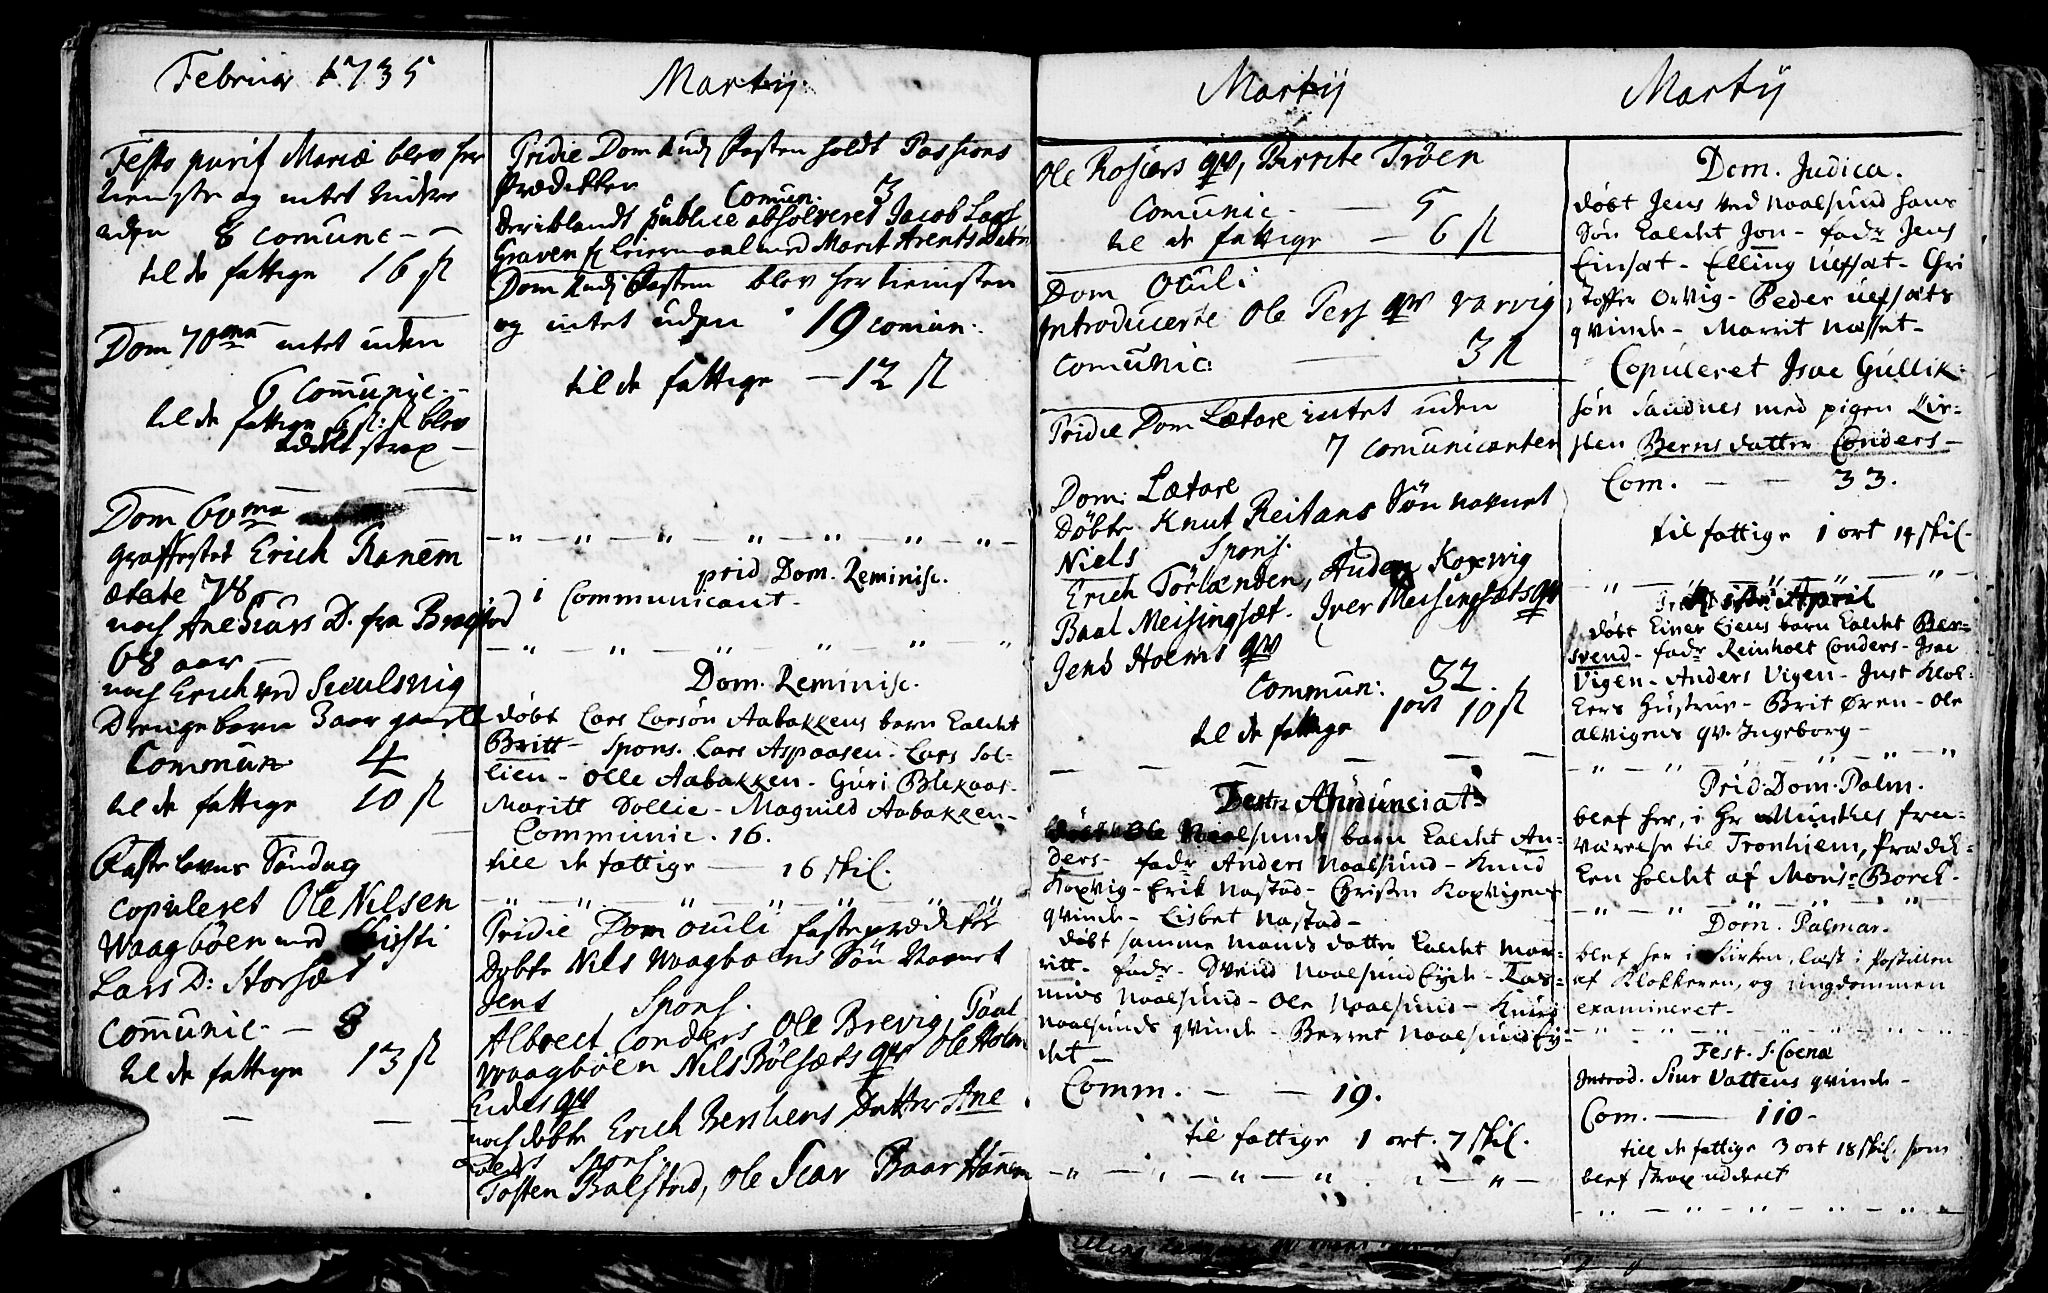 Februar 1735
Festo purif Mariæ blev her
tieniste og intet videre
uden 8 comunc - -
til de fattige 16 sl
Dom 70ma intet uden
6 Comunic. -
til de fattige 6 sl: sl blev
uddelt strax -
Dom 60ma
graffæstet Erich Ranem
ætate 78
noch Ane Siurs D. fra Bræstad
68 aar -
noch Erich ved
Drengebarn 3 aar gamelt
Commun 4
til de fattige 10 sl
Faste lavns Søndag
copuleret Ole Nilsen
Waagbøen med Kirsti
Lars D: Storsæt
Comunic - 8
til de fattige 13 sl
Martij
Pridie Dom Fasten holdt Passions
Prædikken Comun. 3
Deriblandt publice absolveret Jacob Lars
Graven f leiermaal med Marit Arents Datter
Dom Fasten blev her tienisten
og intet uden 19 comun:
til de fattige - 12 sl
prid Dom. Reminisc.
1 Communicant -
Dom. Reminisc.
døbt Lars Larsøn Aabakkens barn kaldet
Britt - Spons. Lars Aspaasen - Lars Sol-
lien - Olle Aabakken - Guri Blekaas -
Maritt Sollie - Magnild Aabakken -
Communic. 16.
till de fattige - 16 skil.
Pridie Dom Oculi fasteprædiken
Døbte Nils Waagbøens Søn Navnet
Jens Spons.
Albrect Conders Ole Brevig, Paal
Waagbøen Nils Bølsæts qv Ole Holm
Eides qv
noch døbte Erich Datter Ane
Spons.
Tosten Balstad, Ole Scar Baar Hanem
Martij
Ole Rosiærs qv, Birrite Trøen
Comunic - 5
til de fattige - 6 sl
Dom Oculi
Introducerte Ole Pers qv Varvig
Comunic: - 3 sl
Pridie Dom Lætare intet uden
7 comunicanter
Dom: Lætare
Døbte Knut Reitans Søn navnet
Niels Spons.
Erich Törlænden, Anders Koxwig
Baal Meisingsæt. Iver Meisingsæts qv
Jens Holms qv
Commun: 32.
til de fattige 1 ort 10 sl
Festo Annunciat:
døbt Ole Naalsunds barn kaldet An-
ders - fadr Anders Naalsund - Knud
Koxvig - Erik Nastad - Christen Koxvigens
qvinde - Lisbet Nastad -
døbt samme Mands datter kaldet Mar-
ritt - fadr - Svend Naalsund Eyde - Ras-
mus Naalsund - Ole Naalsund - Knud
Naalsunds qvinde - Berret Naalsund Ey-
det -
Comm. - - 19.
til fattige 1 ort. 7 skil.
Martij
Dom. Judica.
døbt Jens ved Naalsund hans
Søn kaldet Jon - fadr Jens
Einsæt - Elling Ulfsæt - Chri
stoffer Orvig - Peder Ulfsæts
qvinde - Marrit Næsset -
Copuleret Isac Gullik-
søn Sandnes med pigen Kir-
sten Bernsdatter Conders -
Com. - - 33.
til fattige 1 ort 14 skil.
April
døbt Einer Eiens barn kaldet Ber-
svend - fadr Reinholt Conders - Isac
Vigen - Anders Vigen - Just Klok-
kers hustrue - Brit Øren - Ole
Alvigens qv. Ingeborg -
Prid: Dom. Palm.
blef her, i Hr Munthes fra-
værelse til Tronhiem, Prædik-
ken holdet af Monsr Borch.
Dom. Palmar.
blef her i Kirken, læst i Postillen
af Klokkeren, og ungdommen
examineret.
Fest. S. Coenæ
Introd. Siur Vattens qvinde -
Com. - 110 -
till de fattige 3 ort 18 skil. som
blef strax uddeelt